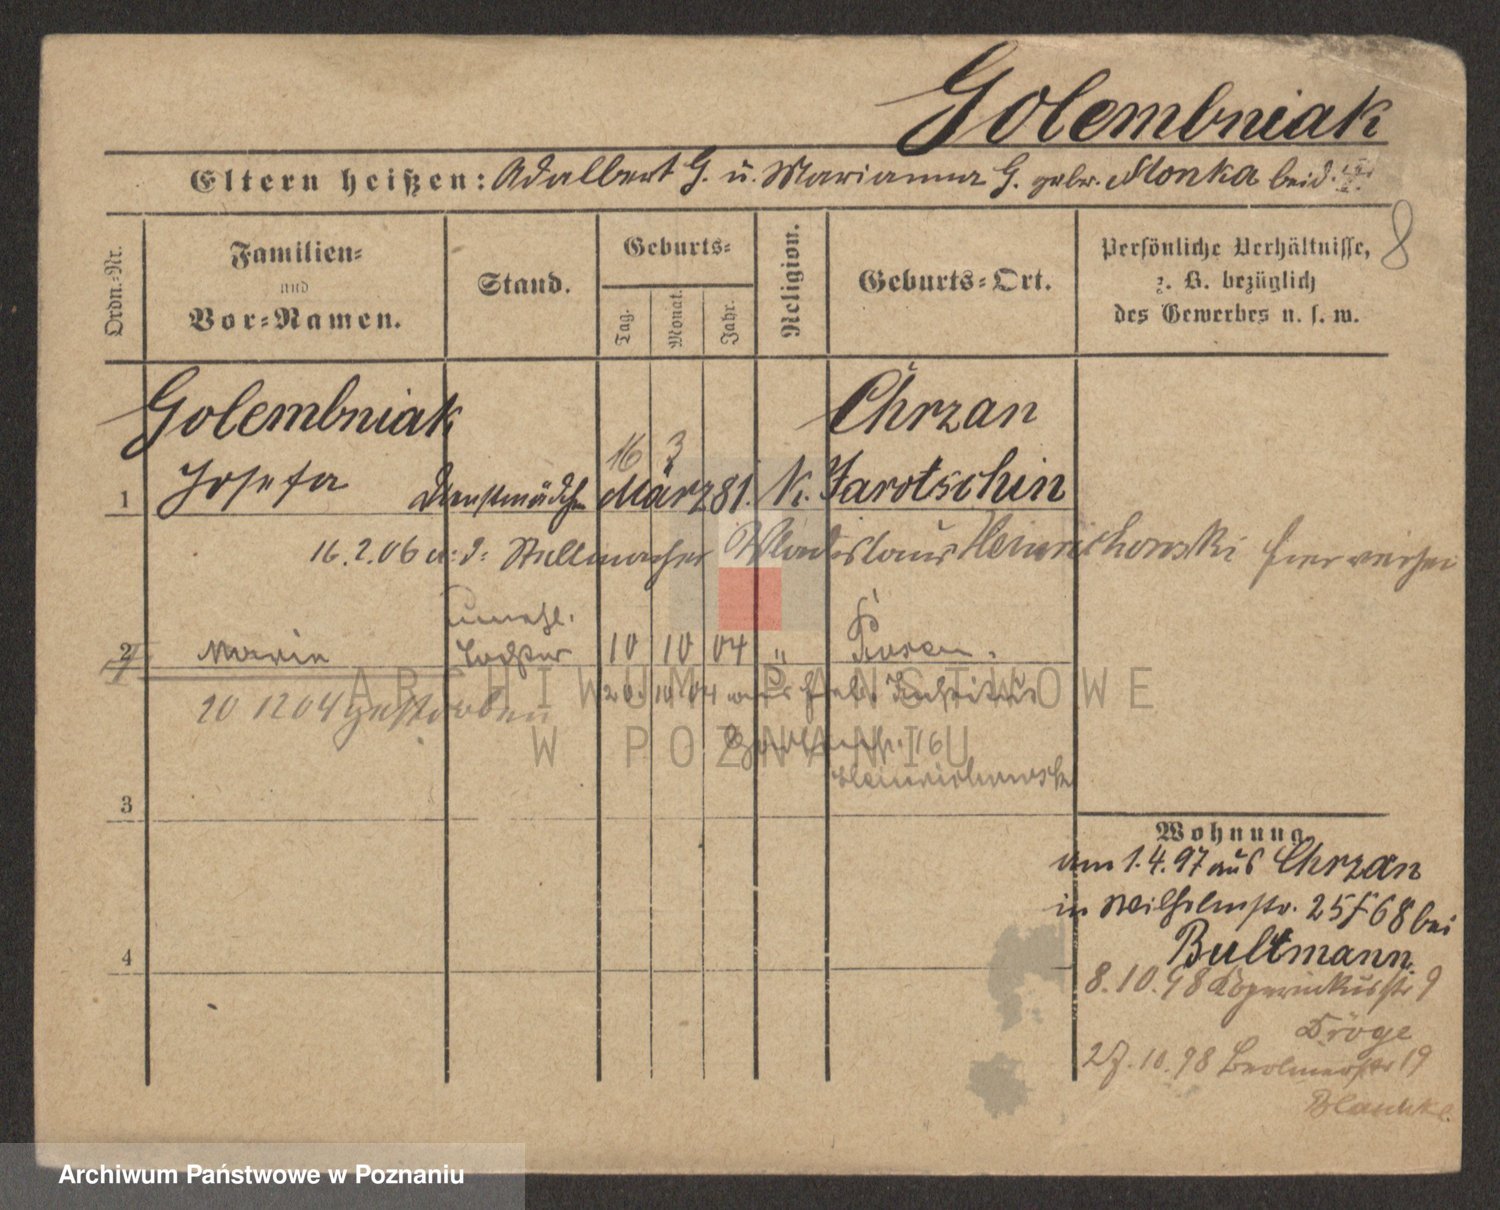 Golembniak
Eltern heißen: Adalbert G. u. Marianna G. gebr. Monka beid.
8
Ordn.-Nr.
Familien-
und
Vor-Namen.
Stand.
Geburts-
Tag.
Monat.
Jahr.
Religion.
Geburts-Ort.
Persönliche Verhältnisse,
z. B. bezüglich
des Gewerbes u. s. w.
Golembniak
Chrzan
16 3
1 Josefa Dienstmädch. März 81. K. Jarotschin
16.2.06 a: d: Stellmacher Wladislaus Heinrichowski hier verhei
unehl.
2 Maria Tochter 10 10 04 " Posen.
20 12 04 gestorben
20. 10 04 aus heb. Institut
16
Heinrichowski
3
4
Wohnung
am 1.4.97 aus Chrzan
in Wilhelmstr. 25 f 68 bei
Bultmann.
8.10.98 Kopernikusstr 9
Dröge
27.10.98 Berlinerstr 19
Blaschke.
ARCHIWUM PAŃSTWOWE
W POZNANIU
Archiwum Państwowe w Poznaniu